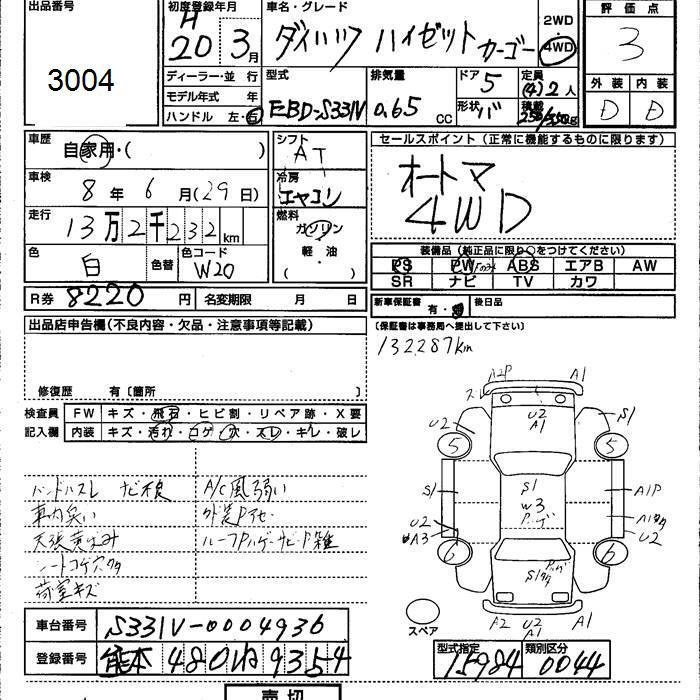 出品番号
3004
初度登録年月
H 20 3月
車名・グレード
ダイハツ ハイゼット カーゴー
2WD
4WD
評価点
3
ディーラー・並 行
モデル年式 年
ハンドル 左・右
型式
EBD-S331V
排気量
0.65 CC
ドア 5
形状 バ
定員
(4) 2人
積載
外装 内装
D D
車歴
自家用・( )
車検
8年 6月(29日)
走行
13万2千232km
色
白
色替
色コード
W20
シフト
AT
冷房
エヤコン
燃料
ガソリン
軽・油
( )
R券 8220円
名変期限 月 日
セールスポイント(正常に機能するものに限ります)
オートマ
4WD
装備品(純正品に限り○をつけてください)
PS PW ABS エアB AW
SR ナビ TV カワ
新車保証書 有・無
後日品
(保証書は事務局へ提出して下さい)
132287km
出品店申告欄(不良内容・欠品・注意事項等記載)
修復歴 有〔箇所 〕
検査員 FW キズ・飛石・ヒビ割・リペア跡・X要
記入欄 内装 キズ・汚れ・コゲ・穴・スレ・キレ・破レ
ハンドルスレ ナビ不良 A/C風弱い
車内臭い 外装Pアセ
天張黄ばみ
シートコゲ穴
荷室キズ
A2P A1
スレ
U2
A1
U2 S1
5 5
S1 S1 A1P
W3
U2
A3 U2
6 6
A2 U2 A1
A1
スペア
車台番号 S331V-0004936
登録番号 熊本 480 ね 9354
型式指定 15984
類別区分 0044
売切